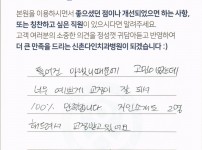 본원을 이용하시면서 좋으셨던 점이나 개선되었으면 하는 사항,
또는 칭찬하고 싶은 직원이 있으시다면 말씀해주세요.
고객 여러분의 소중한 의견을 정성껏 귀담아듣고 반영하여
더 큰 만족을 드리는 신촌다인치과병원이 되겠습니다 :)
들어간 아랫니때문에 고민이었는데
너무 예쁘게 교정이 잘 되서
100% 만족합니다 지인소개도 2명
해드려서 교정받고있어요